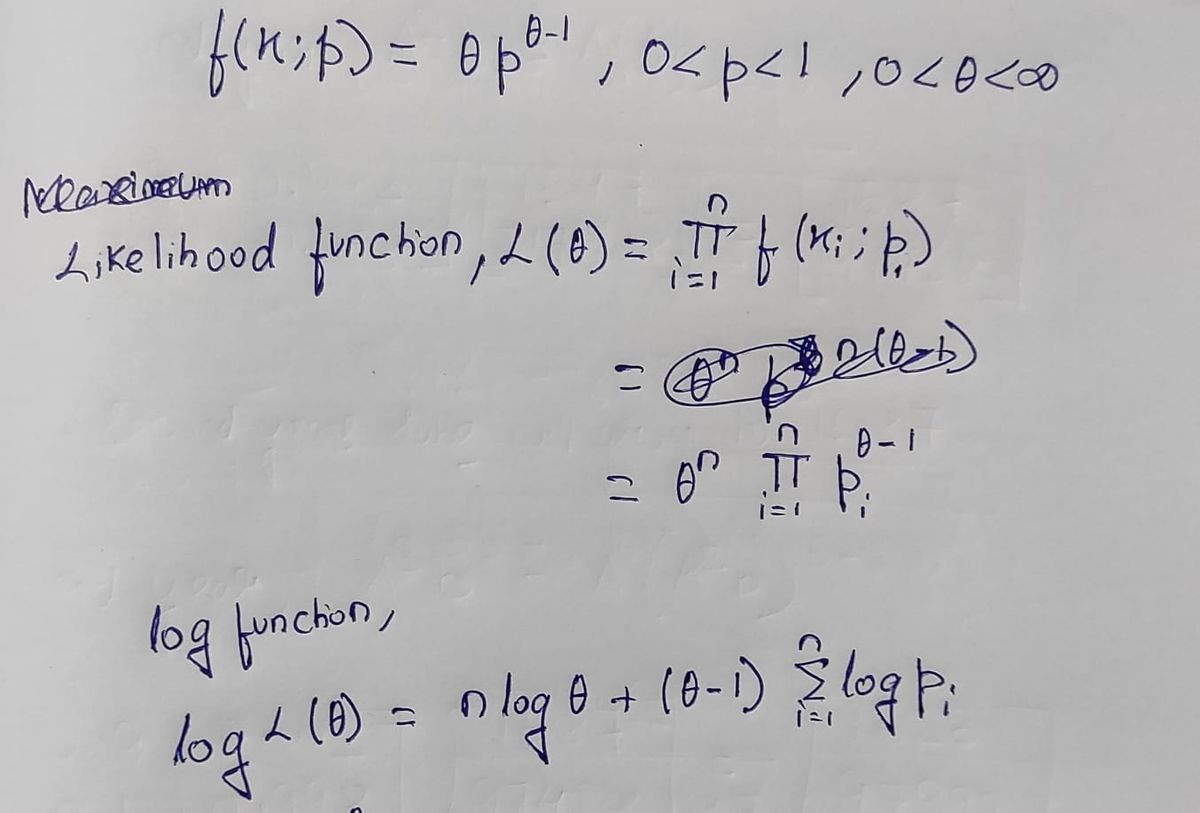 f(x;p) = θp^{θ-1}, 0<p<1, 0<θ<∞
Likelihood function, L(θ) = ∏_{i=1}^{n} f(x_i; p_i)
= θ^n ∏_{i=1}^{n} p_i^{θ-1}
log function,
log L(θ) = n log θ + (θ-1) ∑_{i=1}^{n} log p_i